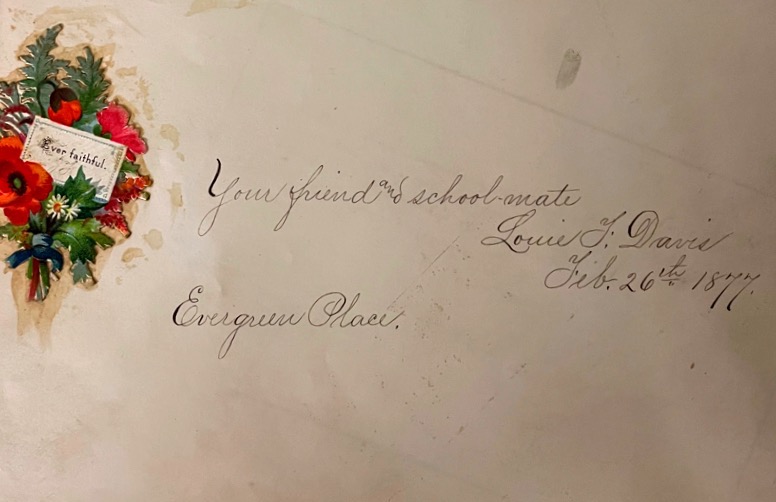 Ever faithful.
Your friend and school-mate
Louie F. Davis
Feb. 26th 1877.
Evergreen Place.